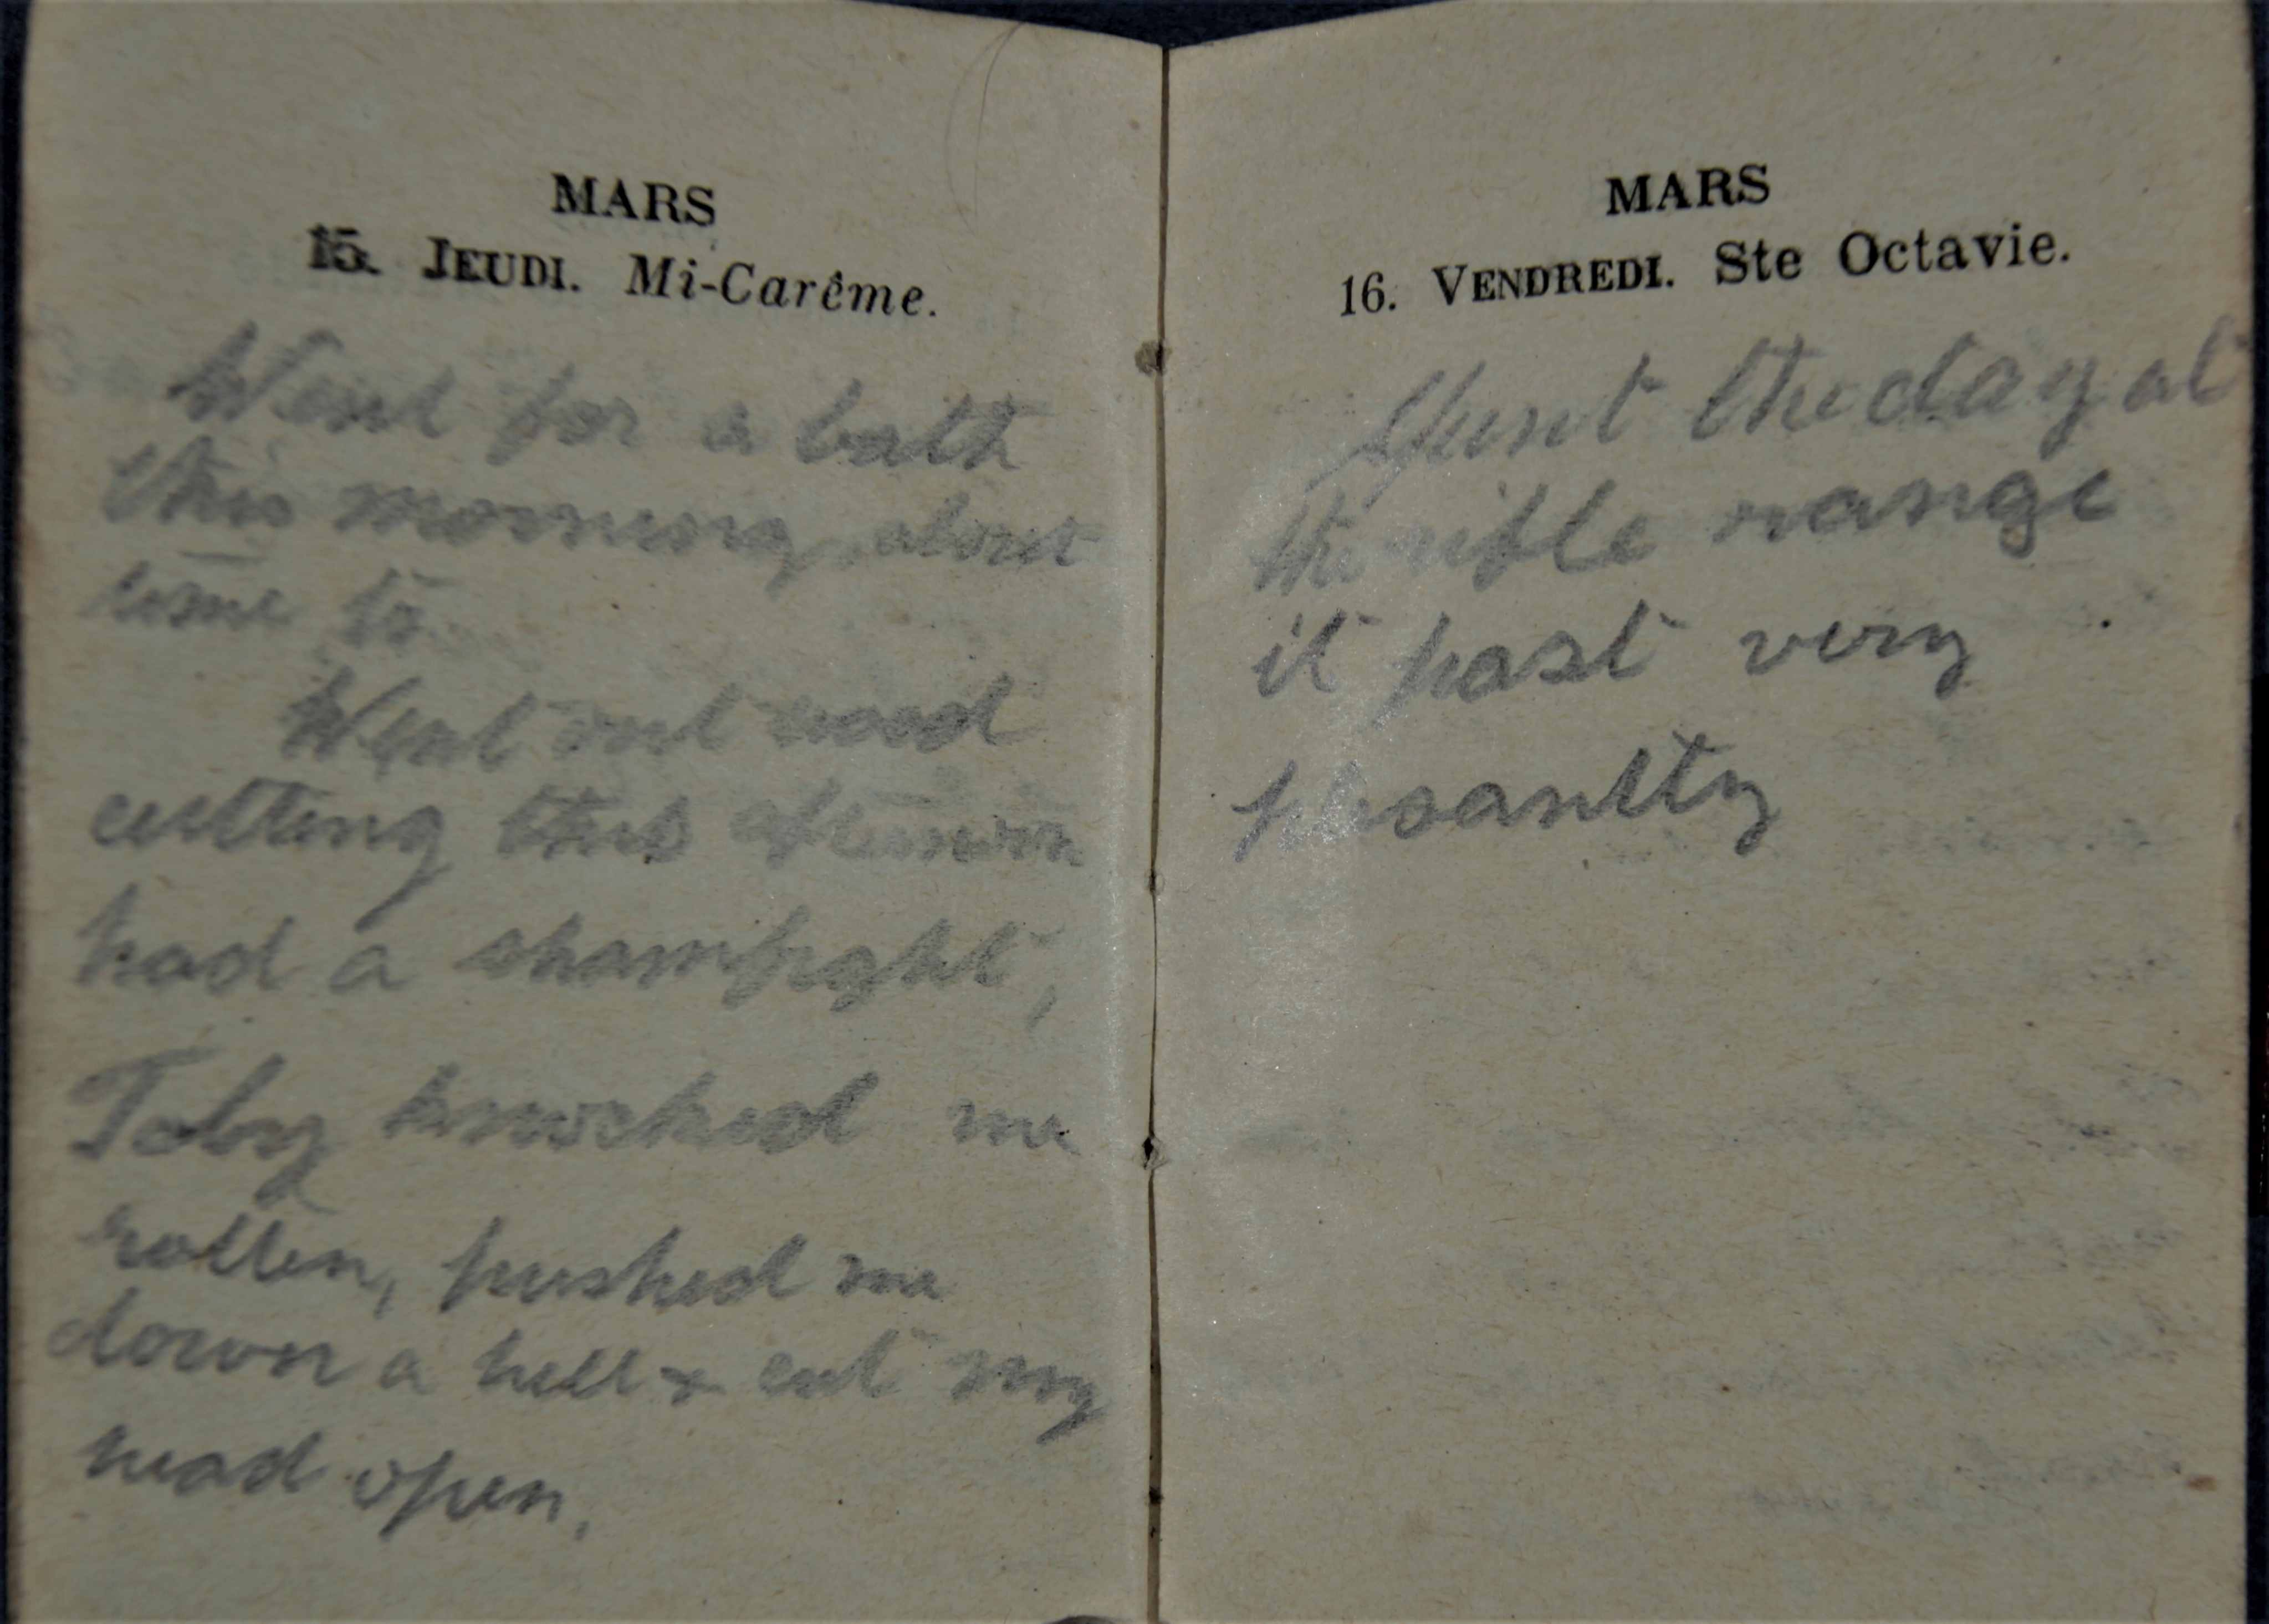 MARS
15. JEUDI. Mi-Carême.
Went for a bath
this morning, about
time to
Went out wood
cutting this afternoon
had a shamfight,
Toby knocked me
rotten, pushed me
down a hill & cut my
head open.
MARS
16. VENDREDI. Ste Octavie.
Spent the day at
the rifle range
it past very
plesantty